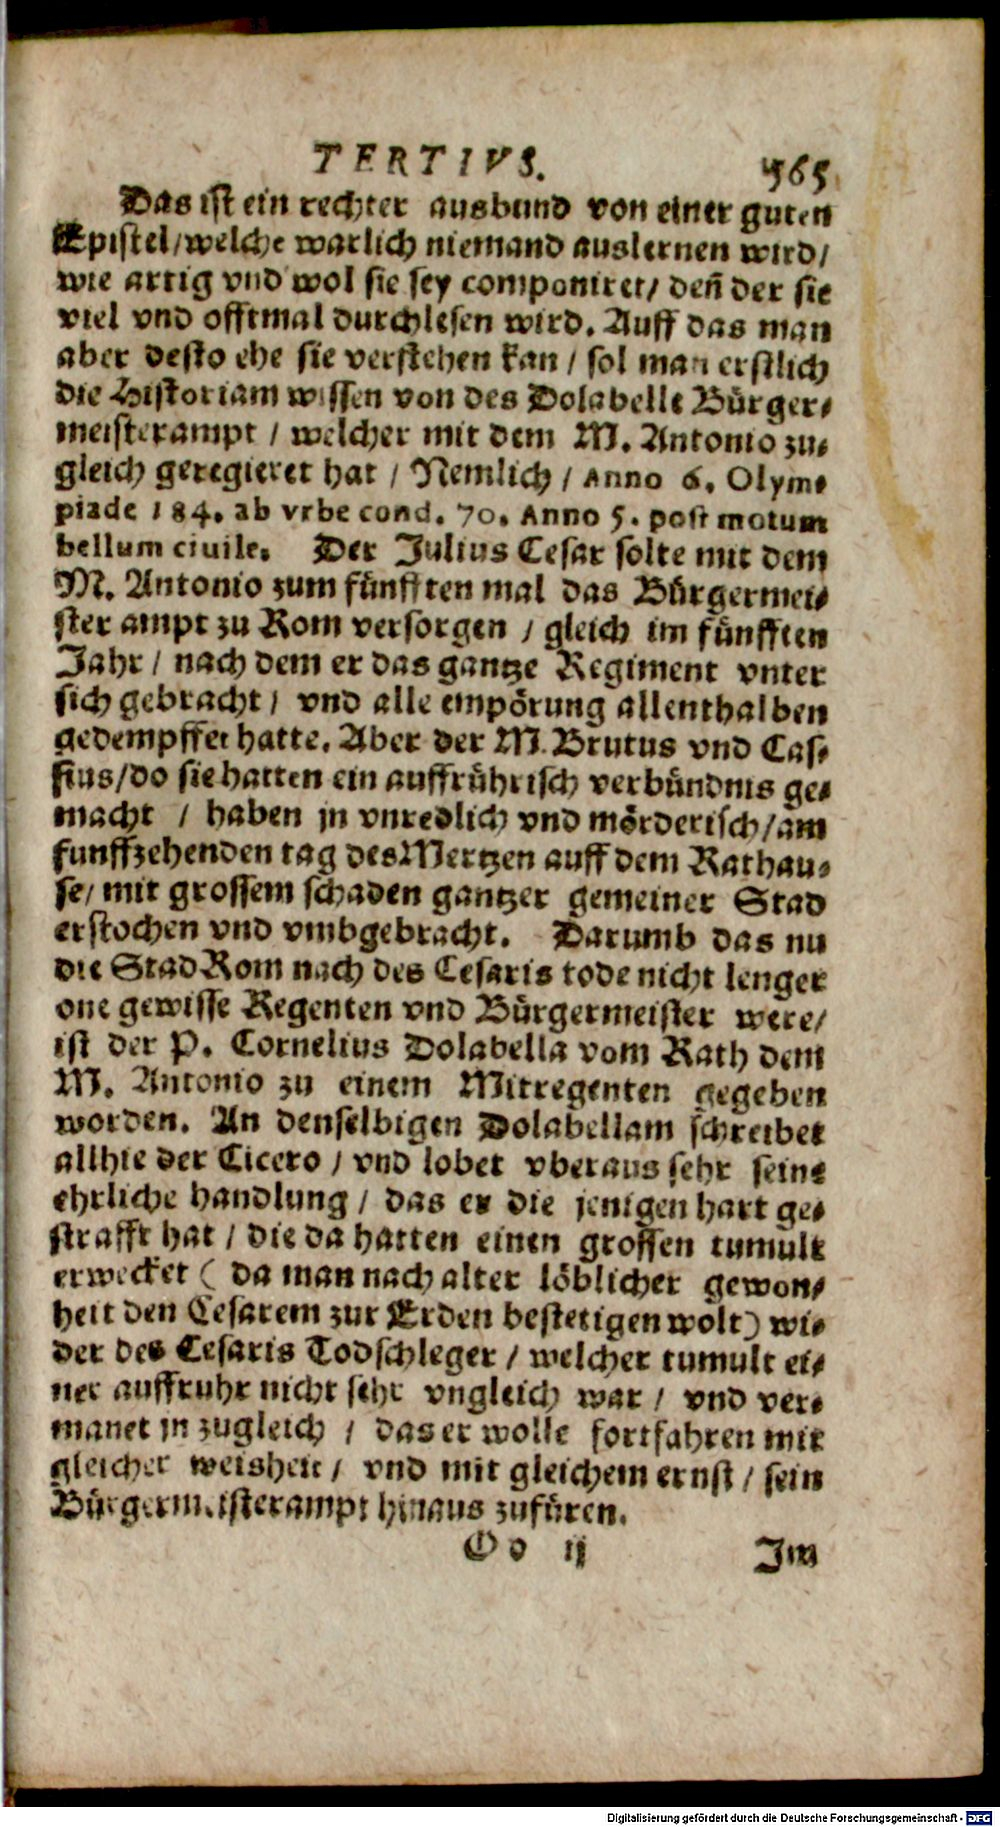 TERTIVS. 565
Das ist ein rechter ausbund von einer guten
Epistel/welche warlich niemand auslernen wird/
wie artig vnd wol sie sey componiret/ deñ der sie
viel vnd offtmal durchlesen wird. Auff das man
aber desto ehe sie verstehen kan / sol man erstlich
die Historiam wissen von des Dolabelle Bürger-
meisterampt / welcher mit dem M. Antonio zu-
gleich geregieret hat / Nemlich / Anno 6. Olym-
piade 184. ab vrbe cond. 70. Anno 5. post motum
bellum ciuile. Der Julius Cesar solte mit dem
M. Antonio zum fünfften mal das Bürgermei-
ster ampt zu Rom versorgen / gleich im fünfften
Jahr / nach dem er das gantze Regiment vnter
sich gebracht / vnd alle empörung allenthalben
gedempffet hatte. Aber der M. Brutus vnd Cas-
sius/do sie hatten ein auffrührisch verbündnis ge-
macht / haben jn vnredlich vnd mörderisch/am
funffzehenden tag des Mertzen auff dem Rathau-
se/ mit grossem schaden gantzer gemeiner Stad
erstochen vnd vmbgebracht. Darumb das nu
die Stad Rom nach des Cesaris tode nicht lenger
one gewisse Regenten vnd Bürgermeister were/
ist der P. Cornelius Dolabella vom Rath dem
M. Antonio zu einem Mitregenten gegeben
worden. An denselbigen Dolabellam schreibet
allhie der Cicero / vnd lobet vberaus sehr seine
ehrliche handlung / das er die jenigen hart ge-
strafft hat / die da hatten einen grossen tumult
erwecket ( da man nach alter löblicher gewon-
heit den Cesarem zur Erden bestetigen wolt) wi-
der des Cesaris Todschleger / welcher tumult ei-
ner auffruhr nicht sehr vngleich war / vnd ver-
manet jn zugleich / das er wolle fortfahren mit
gleicher weisheit / vnd mit gleichem ernst / sein
Bürgermeisterampt hinaus zufüren.
Oo ij Im
Digitalisierung gefördert durch die Deutsche Forschungsgemeinschaft - DFG